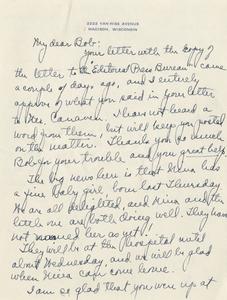 2222 VAN HISE AVENUE
MADISON, WISCONSIN
My dear Bob:
Your letter with the copy of
the letter to the "Editorial Press Bureau" came
a couple of days ago, and I entirely
approve of what you said in your letter
to Mrs. I have not heard a
word from them, but will keep you posted
on the matter. Thank you so much
Bob for your trouble and your great help.
The big news here is that has
a fine baby girl born last Thursday.
We are all delighted, and and the
little one are both doing well. They have
not named her as yet!
They will be at the hospital until
about Wednesday, and we will be glad
when can come home!
I am so glad that you were up at